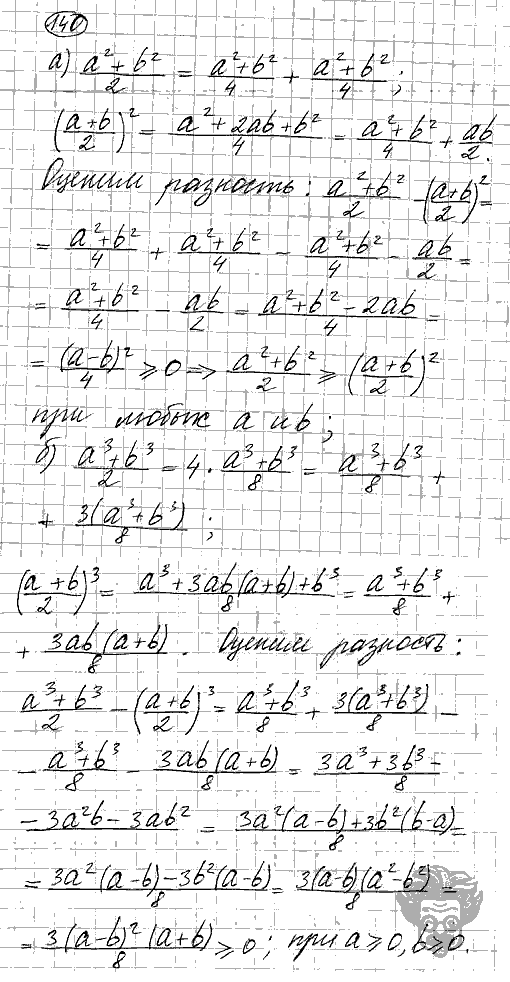 140
а) (a²+b²)/2 = (a²+b²)/4 + (a²+b²)/4 ;
((a+b)/2)² = (a²+2ab+b²)/4 = (a²+b²)/4 + ab/2.
Оценим разность: (a²+b²)/2 - ((a+b)/2)² =
= (a²+b²)/4 + (a²+b²)/4 - (a²+b²)/4 - ab/2 =
= (a²+b²)/4 - ab/2 = (a²+b²-2ab)/4 =
= (a-b)²/4 ⩾ 0 ⇒ (a²+b²)/2 ⩾ ((a+b)/2)²
при любых a и b ;
б) (a³+b³)/2 = 4 · (a³+b³)/8 = (a³+b³)/8 +
+ 3(a³+b³)/8 ;
((a+b)/2)³ = (a³+3ab(a+b)+b³)/8 = (a³+b³)/8 +
+ 3ab(a+b)/8 . Оценим разность:
(a³+b³)/2 - ((a+b)/2)³ = (a³+b³)/8 + 3(a³+b³)/8 -
- (a³+b³)/8 - 3ab(a+b)/8 = (3a³+3b³-
-3a²b-3ab²)/8 = (3a²(a-b)+3b²(b-a))/8 =
= (3a²(a-b)-3b²(a-b))/8 = 3(a-b)(a²-b²)/8 =
= 3(a-b)²(a+b)/8 ⩾ 0 ; при a ⩾ 0, b ⩾ 0.